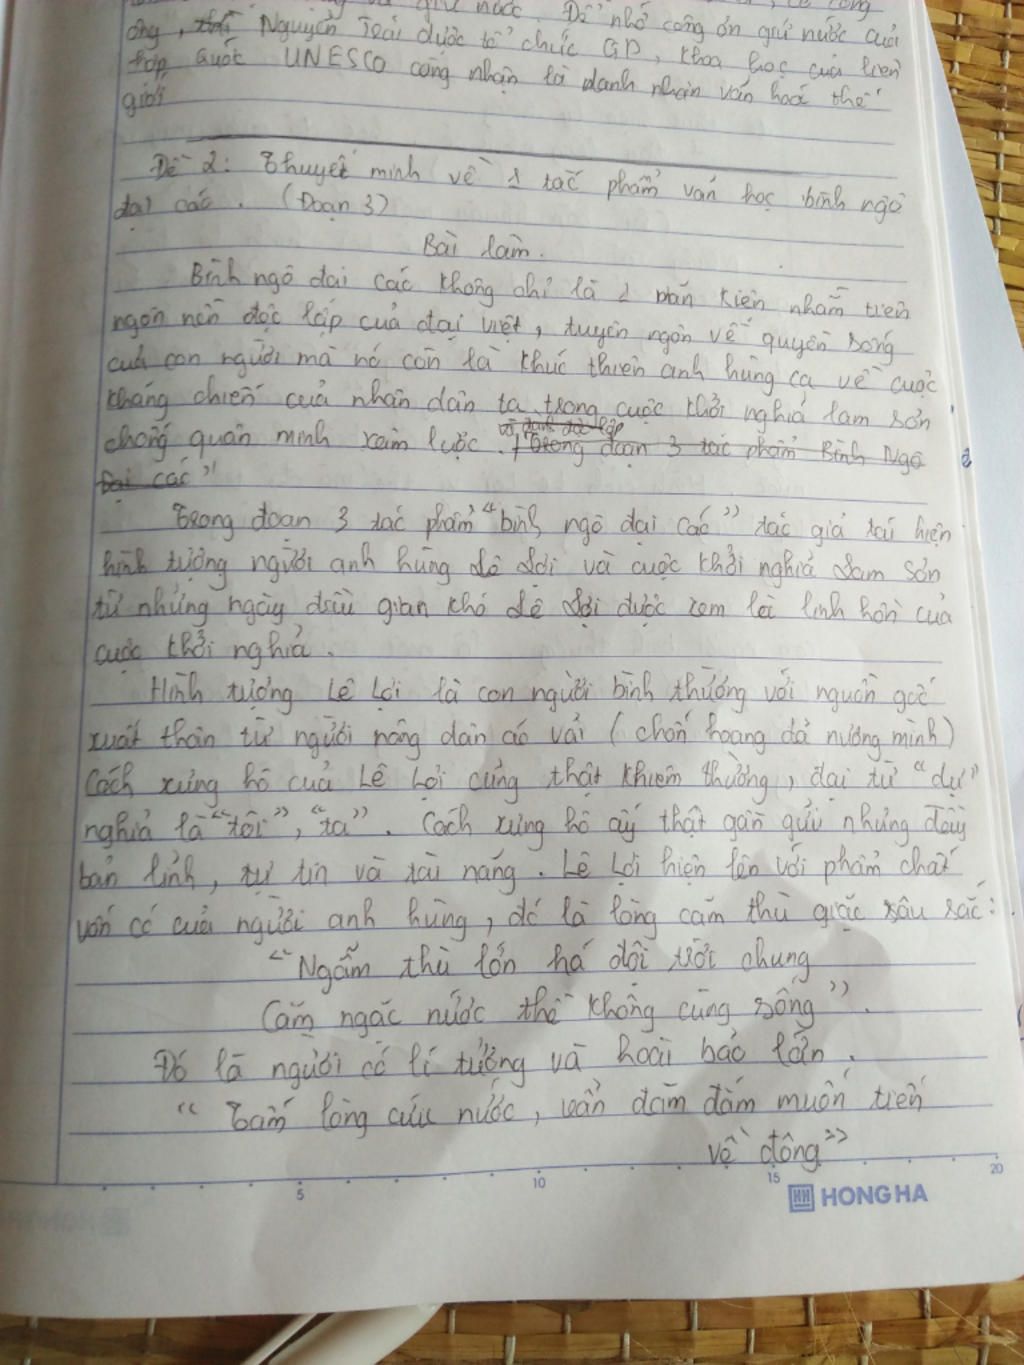 giữ nước. Để nhớ công ơn giữ nước của
ông, Nguyễn Trãi được tổ chức GD, khoa học của liên
hợp quốc UNESCO công nhận là danh nhân văn hoá thế
giới
Đề 2: Thuyết minh về 1 tác phẩm văn học bình ngô
đại cáo. (Đoạn 3)
Bài làm.
Bình ngô đại cáo không chỉ là 1 văn kiện nhằm tuyên
ngôn nền độc lập của đại việt, tuyên ngôn về quyền sống
của con người mà nó còn là khúc thiên anh hùng ca về cuộc
kháng chiến của nhân dân ta trong cuộc khởi nghĩa lam sơn
chống quân minh xâm lược. Trong đoạn 3 tác phẩm Bình Ngô
Đại cáo"
Trong đoạn 3 tác phẩm "bình ngô đại cáo" tác giả tái hiện
hình tượng người anh hùng Lê Lợi và cuộc khởi nghĩa Lam Sơn
từ những ngày đầu gian khó Lê Lợi được xem là linh hồn của
cuộc khởi nghĩa.
Hình tượng Lê Lợi là con người bình thường với nguồn gốc
xuất thân từ người nông dân áo vải (chốn hoang dã nương mình)
Cách xưng hô của Lê Lợi cũng thật khiêm nhường, đại từ "dư"
nghĩa là "tôi", "ta". Cách xưng hô ấy thật gần gũi nhưng đầy
bản lĩnh, tự tin và tài năng. Lê Lợi hiện lên với phẩm chất
vốn có của người anh hùng, đó là lòng căm thù giặc sâu sắc:
"Ngẫm thù lớn há đội trời chung
Căm ngặc nước thề không cùng sống".
Đó là người có lí tưởng và hoài bão lớn.
"Tấm lòng cứu nước, vẫn đăm đắm muốn tiến
về đông"
5 10 15 20
HONG HA